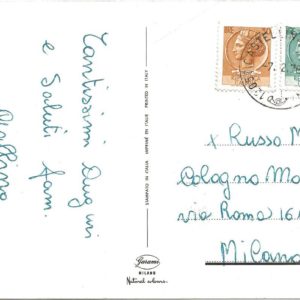 Tantissimi Auguri
e Saluti fam.
STAMPATO IN ITALIA IMPRIMÉ EN ITALIE PRINTED IN ITALY
Garami
MILANO
Natural colour.
CASTEL
x Russo M
Cologno Mo
via Roma 161
Milano